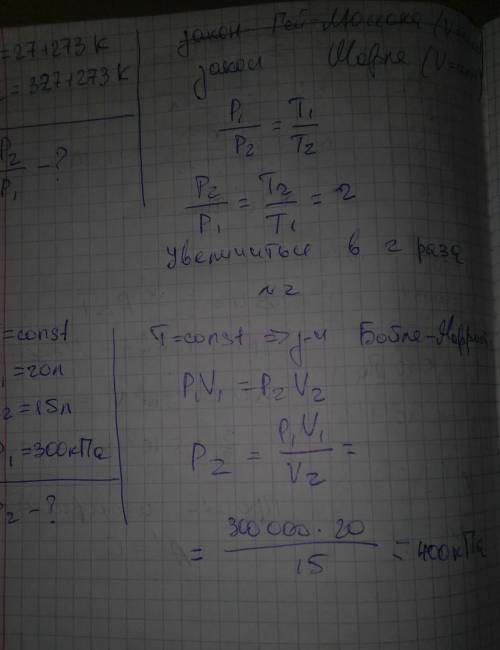 =27+273 K
= 327+273 K
P₂/P₁ – ?
закон Гей-Люссака
закон Шарля (V=const
P₁/P₂ = T₁/T₂
P₂/P₁ = T₂/T₁ = 2
увеличиться в 2 раза
№2
=const
₁ =20л
₂ =15л
P₁ =300кПа
P₂ – ?
T=const => з-н Бойля-Марриот
P₁V₁ = P₂V₂
P₂ = P₁V₁/V₂ =
= 300 000 · 20/15 = 400кПа